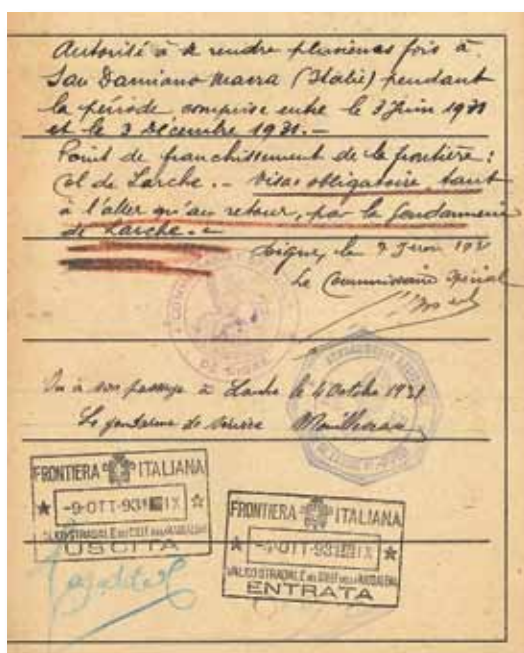 Autorisé à se rendre plusieurs fois à
San Damiano Macra (Italie) pendant
la période comprise entre le 3 Juin 1931
et le 3 Décembre 1931.-
Point de franchissement de la frontière:
Col de Larche.- Visas obligatoire, tant
à l'aller qu'au retour, par la Gendarmerie
de Larche.-
Digne, le Juin 1931
Le Commissaire Spécial
DE DIGNE
Vu à son passage à Larche le 4 Octobre 1931
Le gendarme de service
FRONTIERA ITALIANA
-9·OTT·931 IX
VALICO STRADALE DEL COLLE DELLA MADDALENA
USCITA
FRONTIERA ITALIANA
OTT·931 IX
VALICO STRADALE DEL COLLE DELLA MADDALENA
ENTRATA